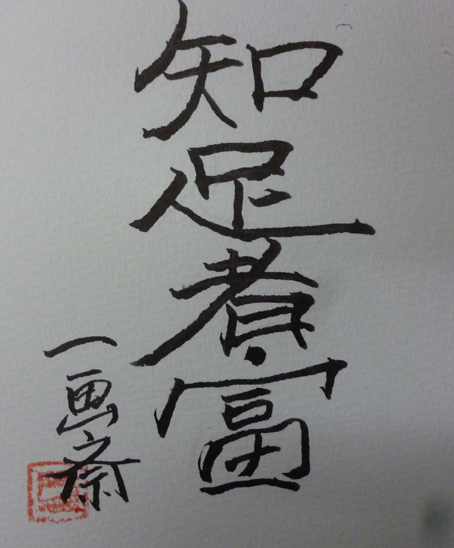 知足者富
一画斎